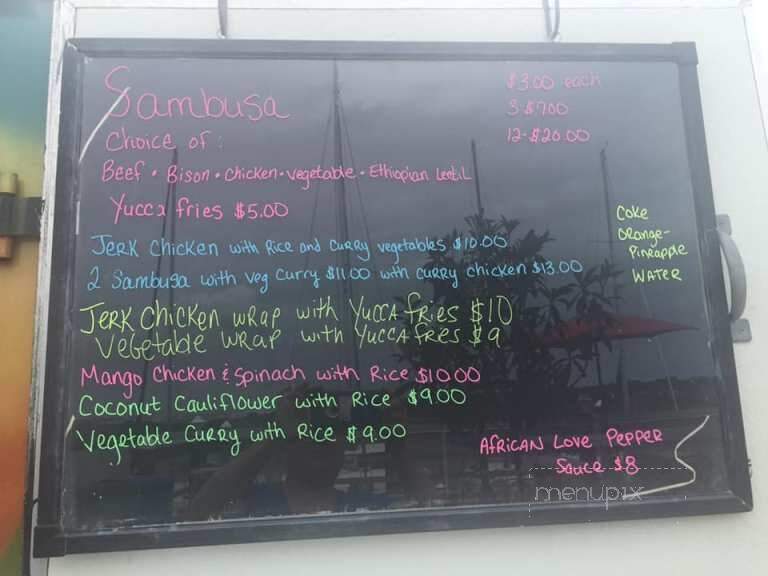 Sambusa
$3.00 each
3-$7.00
12-$20.00
Choice of:
Beef • Bison • Chicken • Vegetable • Ethiopian Lentil
Yucca fries $5.00
Coke
Orange-
Pineapple
Water
Jerk Chicken with Rice and Curry vegetables $10.00
2 Sambusa with veg Curry $11.00 with curry chicken $13.00
Jerk Chicken wrap with Yucca fries $10
Vegetable wrap with Yucca fries $9
Mango Chicken & Spinach with Rice $10.00
Coconut Cauliflower with Rice $9.00
Vegetable Curry with Rice $9.00
African Love Pepper
Sauce $8
menupix